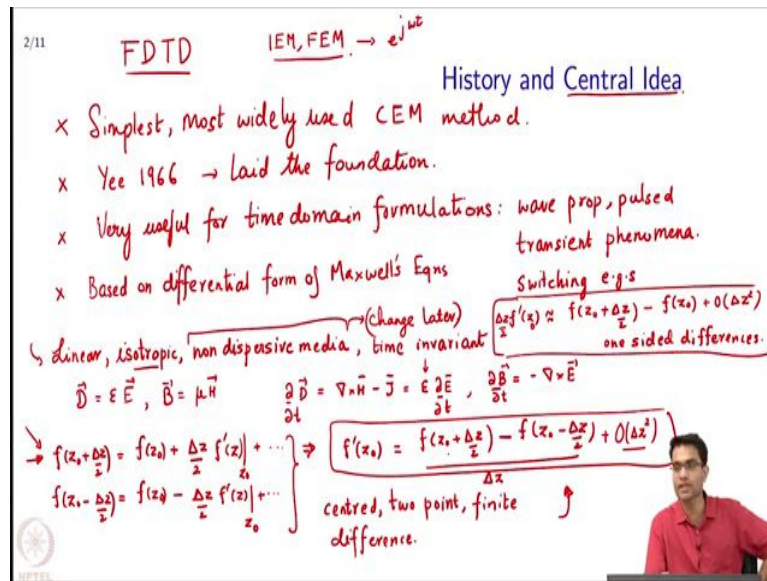 2/11
FDTD
IEM, FEM → e^{jωt}
History and Central Idea
× Simplest, most widely used CEM method.
× Yee 1966 → Laid the foundation.
× Very useful for time domain formulations: wave prop, pulsed
transient phenomena.
Switching e.g.s
× Based on differential form of Maxwell's Eqns
(Change later)
↳ Linear, isotropic, non dispersive media, time invariant
Δz/2 f'(z₀) ≈ f(z₀+Δz/2) - f(z₀) + O(Δz²)
one sided differences.
D⃗ = ε E⃗, B⃗ = μH⃗
∂/∂t D⃗ = ∇×H⃗ - J⃗ = ε ∂E⃗/∂t, ∂B⃗/∂t = -∇×E⃗
f(z₀+Δz/2) = f(z₀) + Δz/2 f'(z)|z₀ + ···
f(z₀-Δz/2) = f(z₀) - Δz/2 f'(z)|z₀ + ···
⇒ f'(z₀) = f(z₀+Δz/2) - f(z₀-Δz/2) + O(Δz²)
Δz
centred, two point, finite
difference.
NPTEL